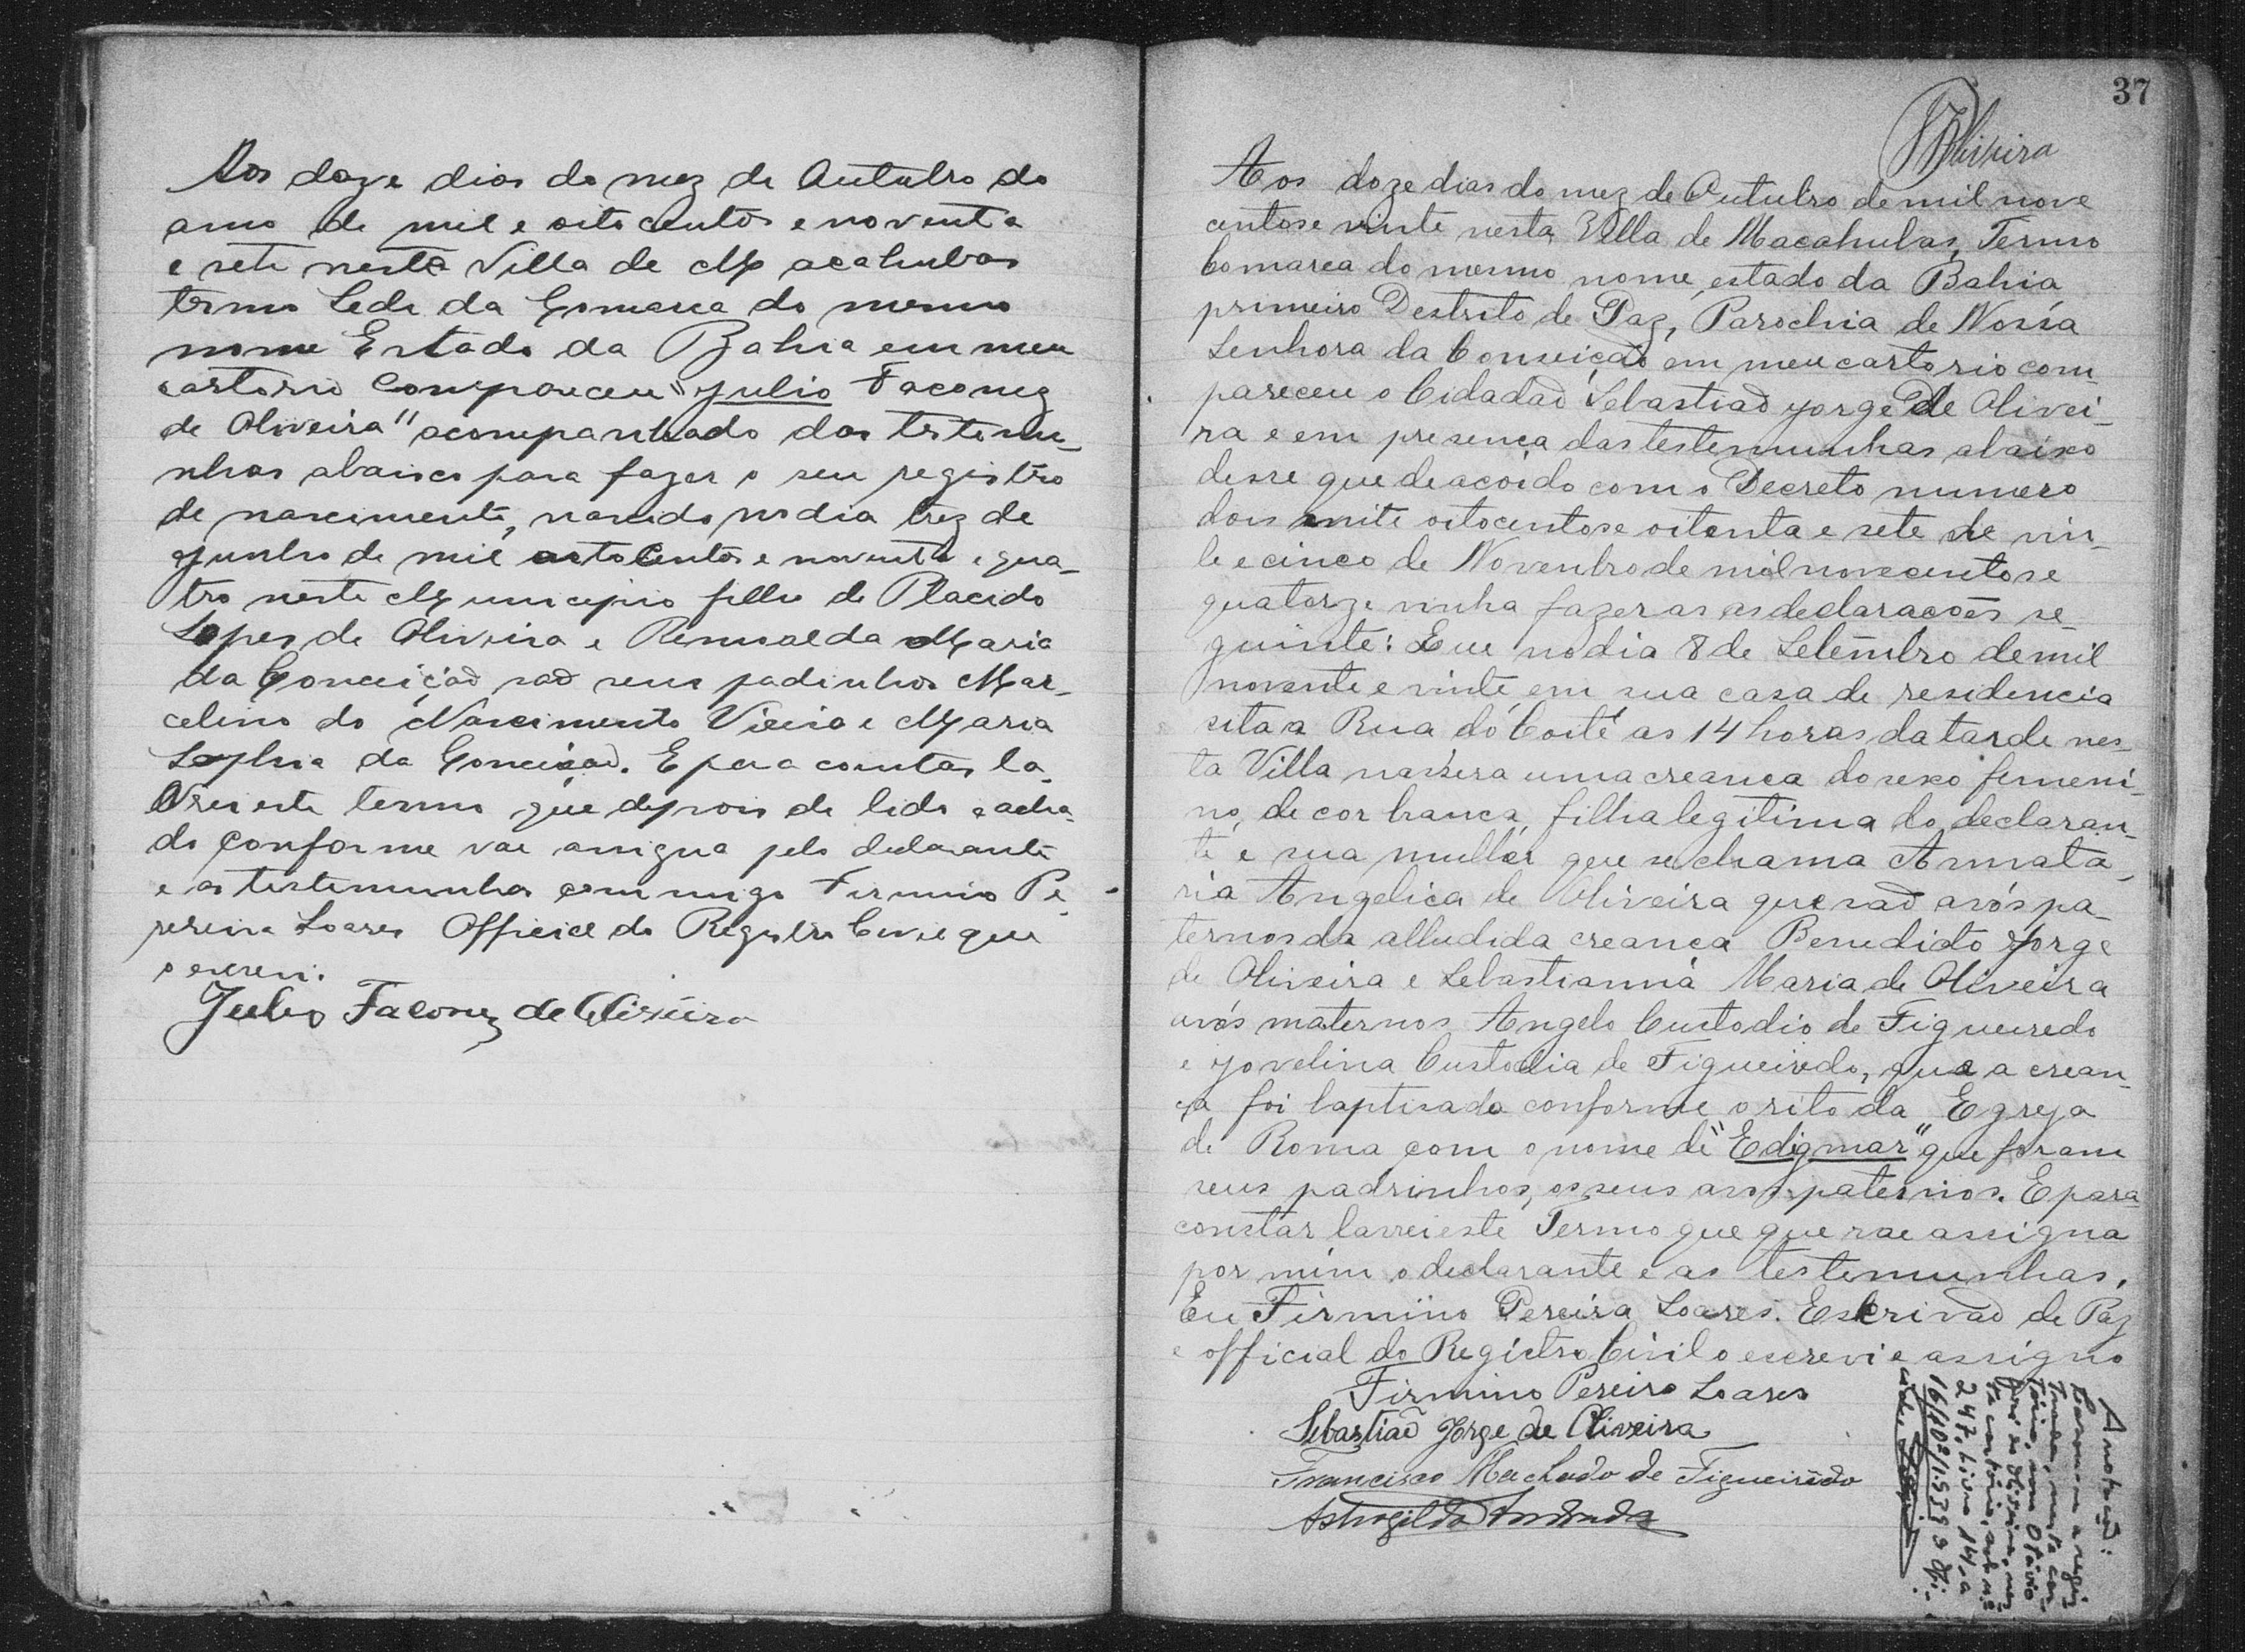 Aos doze dias do mez de Outubro do
anno de mil e oito centos e noventa
e sete nesta Villa de Macahubas
termo Sede da Comarca do mesmo
nome Estado da Bahia em meu
cartorio compareceu "Julio Faconez
de Oliveira" acompanhado das testemu_
nhas abaixo para fazer o seu registro
de nascimento, nascido no dia trez de
Junho de mil oito centos e noventa e qua_
tro neste Municipio filho de Placido
Lopes de Oliveira e Romualda Maria
da Conceição são seus padinhos Mar_
celino do Nascimento Vieira e Maria
Sophia da Conceição. E para constar la_
vrei este termo que depois de lido e acha_
do conforme vae assigna pelo declarante
e as testemunhas com migo Firmino Pe_
pereira Soares Official do Registro Civil que
o escrevi.
Julio Faconez de Oliveira
37
Oliveira
Aos doze dias do mez de Outubro de mil nove
centos e vinte nesta Villa de Macahubas, Termo
Comarca do mesmo nome, estado da Bahia
primeiro Destrito de Paz, Parochia de Nossa
Senhora da Conseição em meu cartorio com_
pareceu o Cidadão Sebastião Jorge de Olivei_
ra e em presença das testemunhas abaixo
desse que de acordo com o Decreto numero
dois mile oitocentos e oitenta e sete de vin_
te e cinco de Novembro de mil novecentos e
quatorze vinha fazer as as declaracoes se_
guinte: Que no dia 8 de Setembro de mil
novente e vinte, em sua casa de residencia
sita a Rua do Coité as 14 horas da tarde nes_
ta Villa nassera uma creança do sexo femeni_
no, de cor branca, filha legitima do declaran_
te e sua mulher que se chama Annata_
ria Angelica de Oliveira que são avós pa_
ternos da alludida creança Benedido Jorge
de Oliveira e Sebastianna Maria de Oliveira
avós maternos Angelo Custodio de Figueiredo
e Jovelina Custodia de Figueiredo, que a crean_
ça foi baptisada conforme o rito da Egreja
de Roma com o nome de "Edigmar" que foram
seus padrinhos, os seus avós paternos. E para
constar lavrei este Termo que que vae assigna
por mim o declarante e as testemunhas.
Eu Firmino Pereira Soares. Escrivão de Paz
e official do Registro Civil o escrevi e assigno
Firmino Pereira Soares
Sebastião Jorge de Oliveira
Francisco Machado de Figueirêdo
Astrogildo Andrade
Anotação:
Casou-se a regis
trada, nesta car-
tório, com Otávio
José de Oliveira, nes
te cartório, sob nº
247, Livro 14, a
16/102/1.939 O Ofi-